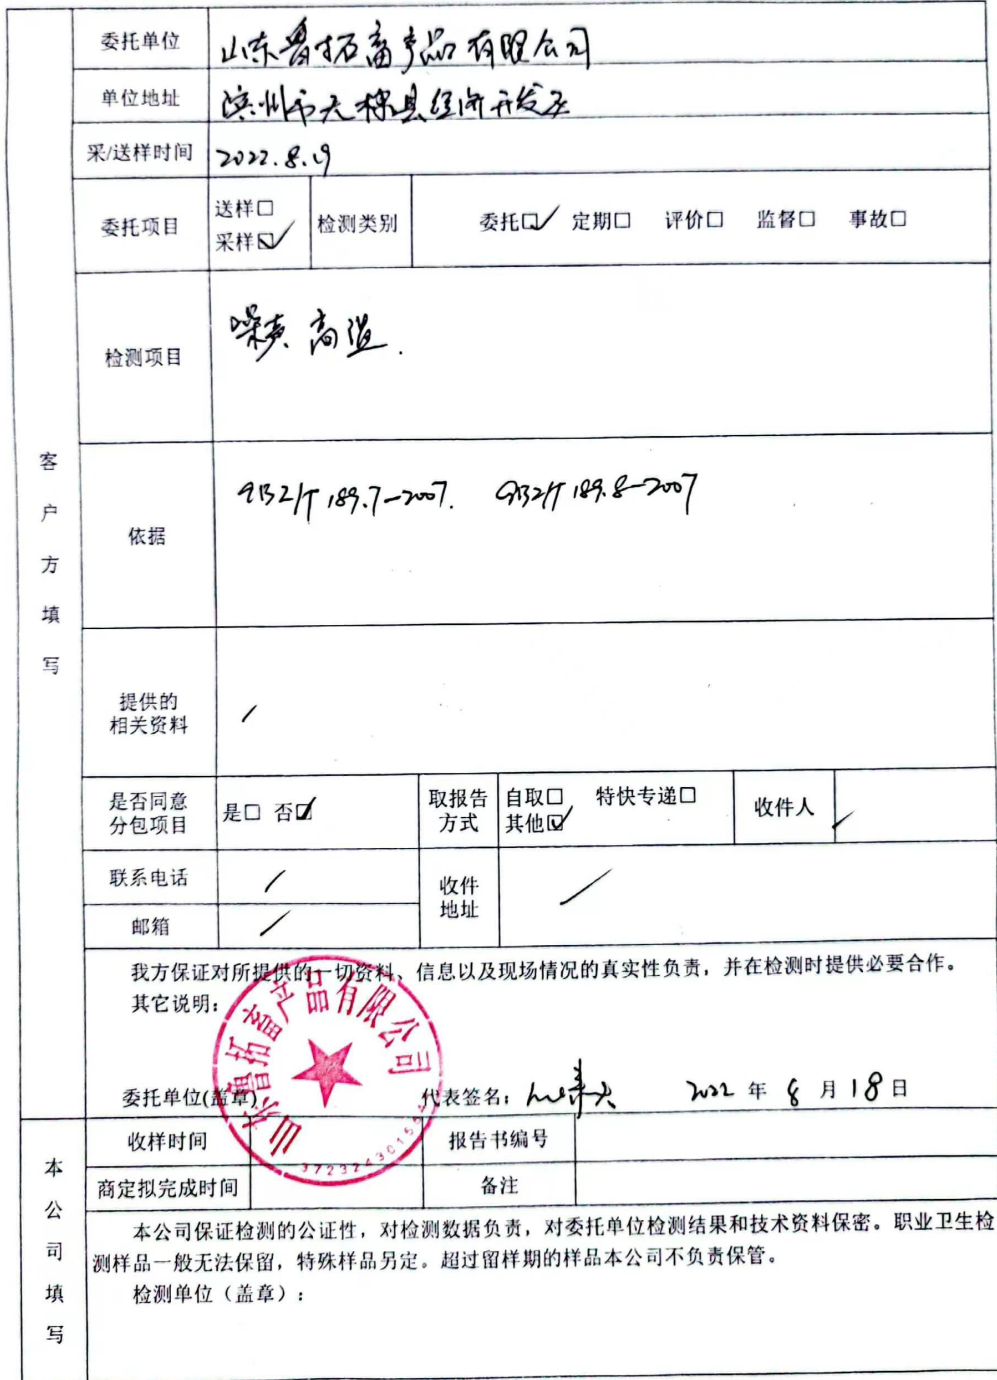 委托单位 山东鲁拓畜产品有限公司
单位地址 滨州市无棣县经济开发区
采/送样时间 2022.8.19
委托项目 送样□ 采样☑ 检测类别 委托☑ 定期□ 评价□ 监督□ 事故□
检测项目 噪声 高温.
客户方填写
依据 GBZ/T 189.7-2007. GBZ/T 189.8-2007
提供的
相关资料 /
是否同意
分包项目 是□ 否☑ 取报告
方式 自取□ 特快专递□
其他☑ 收件人 /
联系电话 / 收件
地址 /
邮箱 /
我方保证对所提供的一切资料、信息以及现场情况的真实性负责，并在检测时提供必要合作。
其它说明：
山东鲁拓畜产品有限公司
委托单位(盖章) 代表签名： 2022 年 8 月 18 日
本公司填写
收样时间 报告书编号
商定拟完成时间 备注
本公司保证检测的公证性，对检测数据负责，对委托单位检测结果和技术资料保密。职业卫生检
测样品一般无法保留，特殊样品另定。超过留样期的样品本公司不负责保管。
检测单位（盖章）：